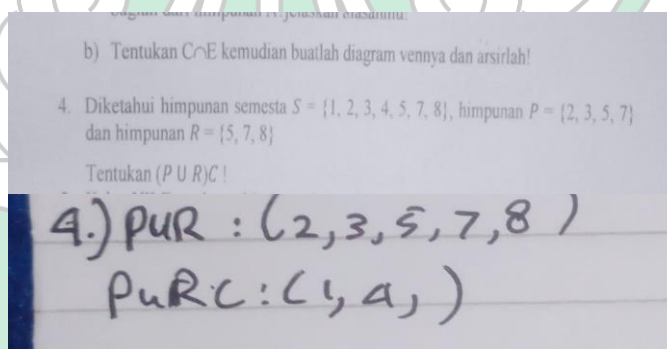 b) Tentukan C∩E kemudian buatlah diagram vennya dan arsirlah!
4. Diketahui himpunan semesta S = {1, 2, 3, 4, 5, 7, 8}, himpunan P = {2, 3, 5, 7}
dan himpunan R = {5, 7, 8}
Tentukan (P U R)C !
4.) PUR : (2,3,5,7,8)
PuRC : (1,4,)